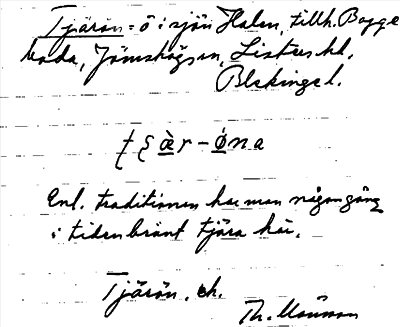 Tjärön = ö i sjön Halen, tillh. Bogge
boda, Jämshögs sn, Listers hd.
Blekinge l.
tʂæ̀r-øna
Enl. traditionen har man någon gång
i tiden bränt tjära här.
Tjärön, ch.
Th.